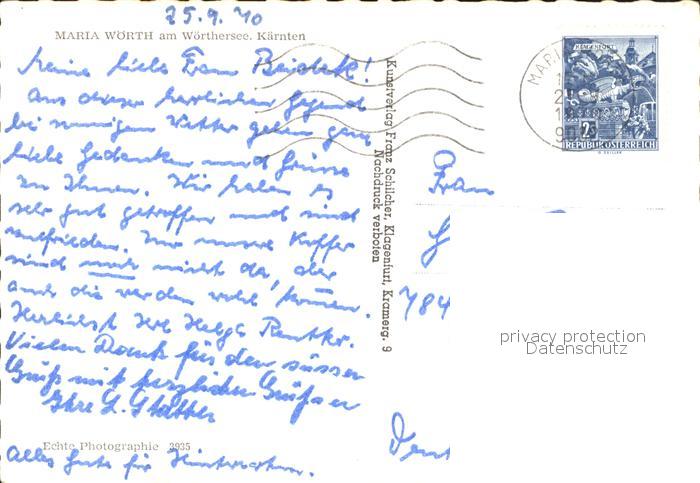 25.9.70
MARIA WÖRTH am Wörthersee. Kärnten
Meine liebe Frau
Aus dieser herrlichen Gegend
bei sonnigem Wetter gehen ganz
liebe Gedanken und Grüsse
zu Ihnen. Wir haben es
sehr gut getroffen und sind
zufrieden. Nur unsere Koffer
sind noch nicht da, aber
auch die werden wohl kommen.
Herzlichst Ihre Helga
Vielen Dank für den süssen
Gruß mit herzlichen Grüßen
Ihre
Echte Photographie 3935
Alles Gute für
Kunstverlag Franz Schilcher, Klagenfurt, Kramerg. 9
Nachdruck verboten
MARI
KLAGENFURT
2S
REPUBLIK ÖSTERREICH
Frau
784
privacy protection
Datenschutz